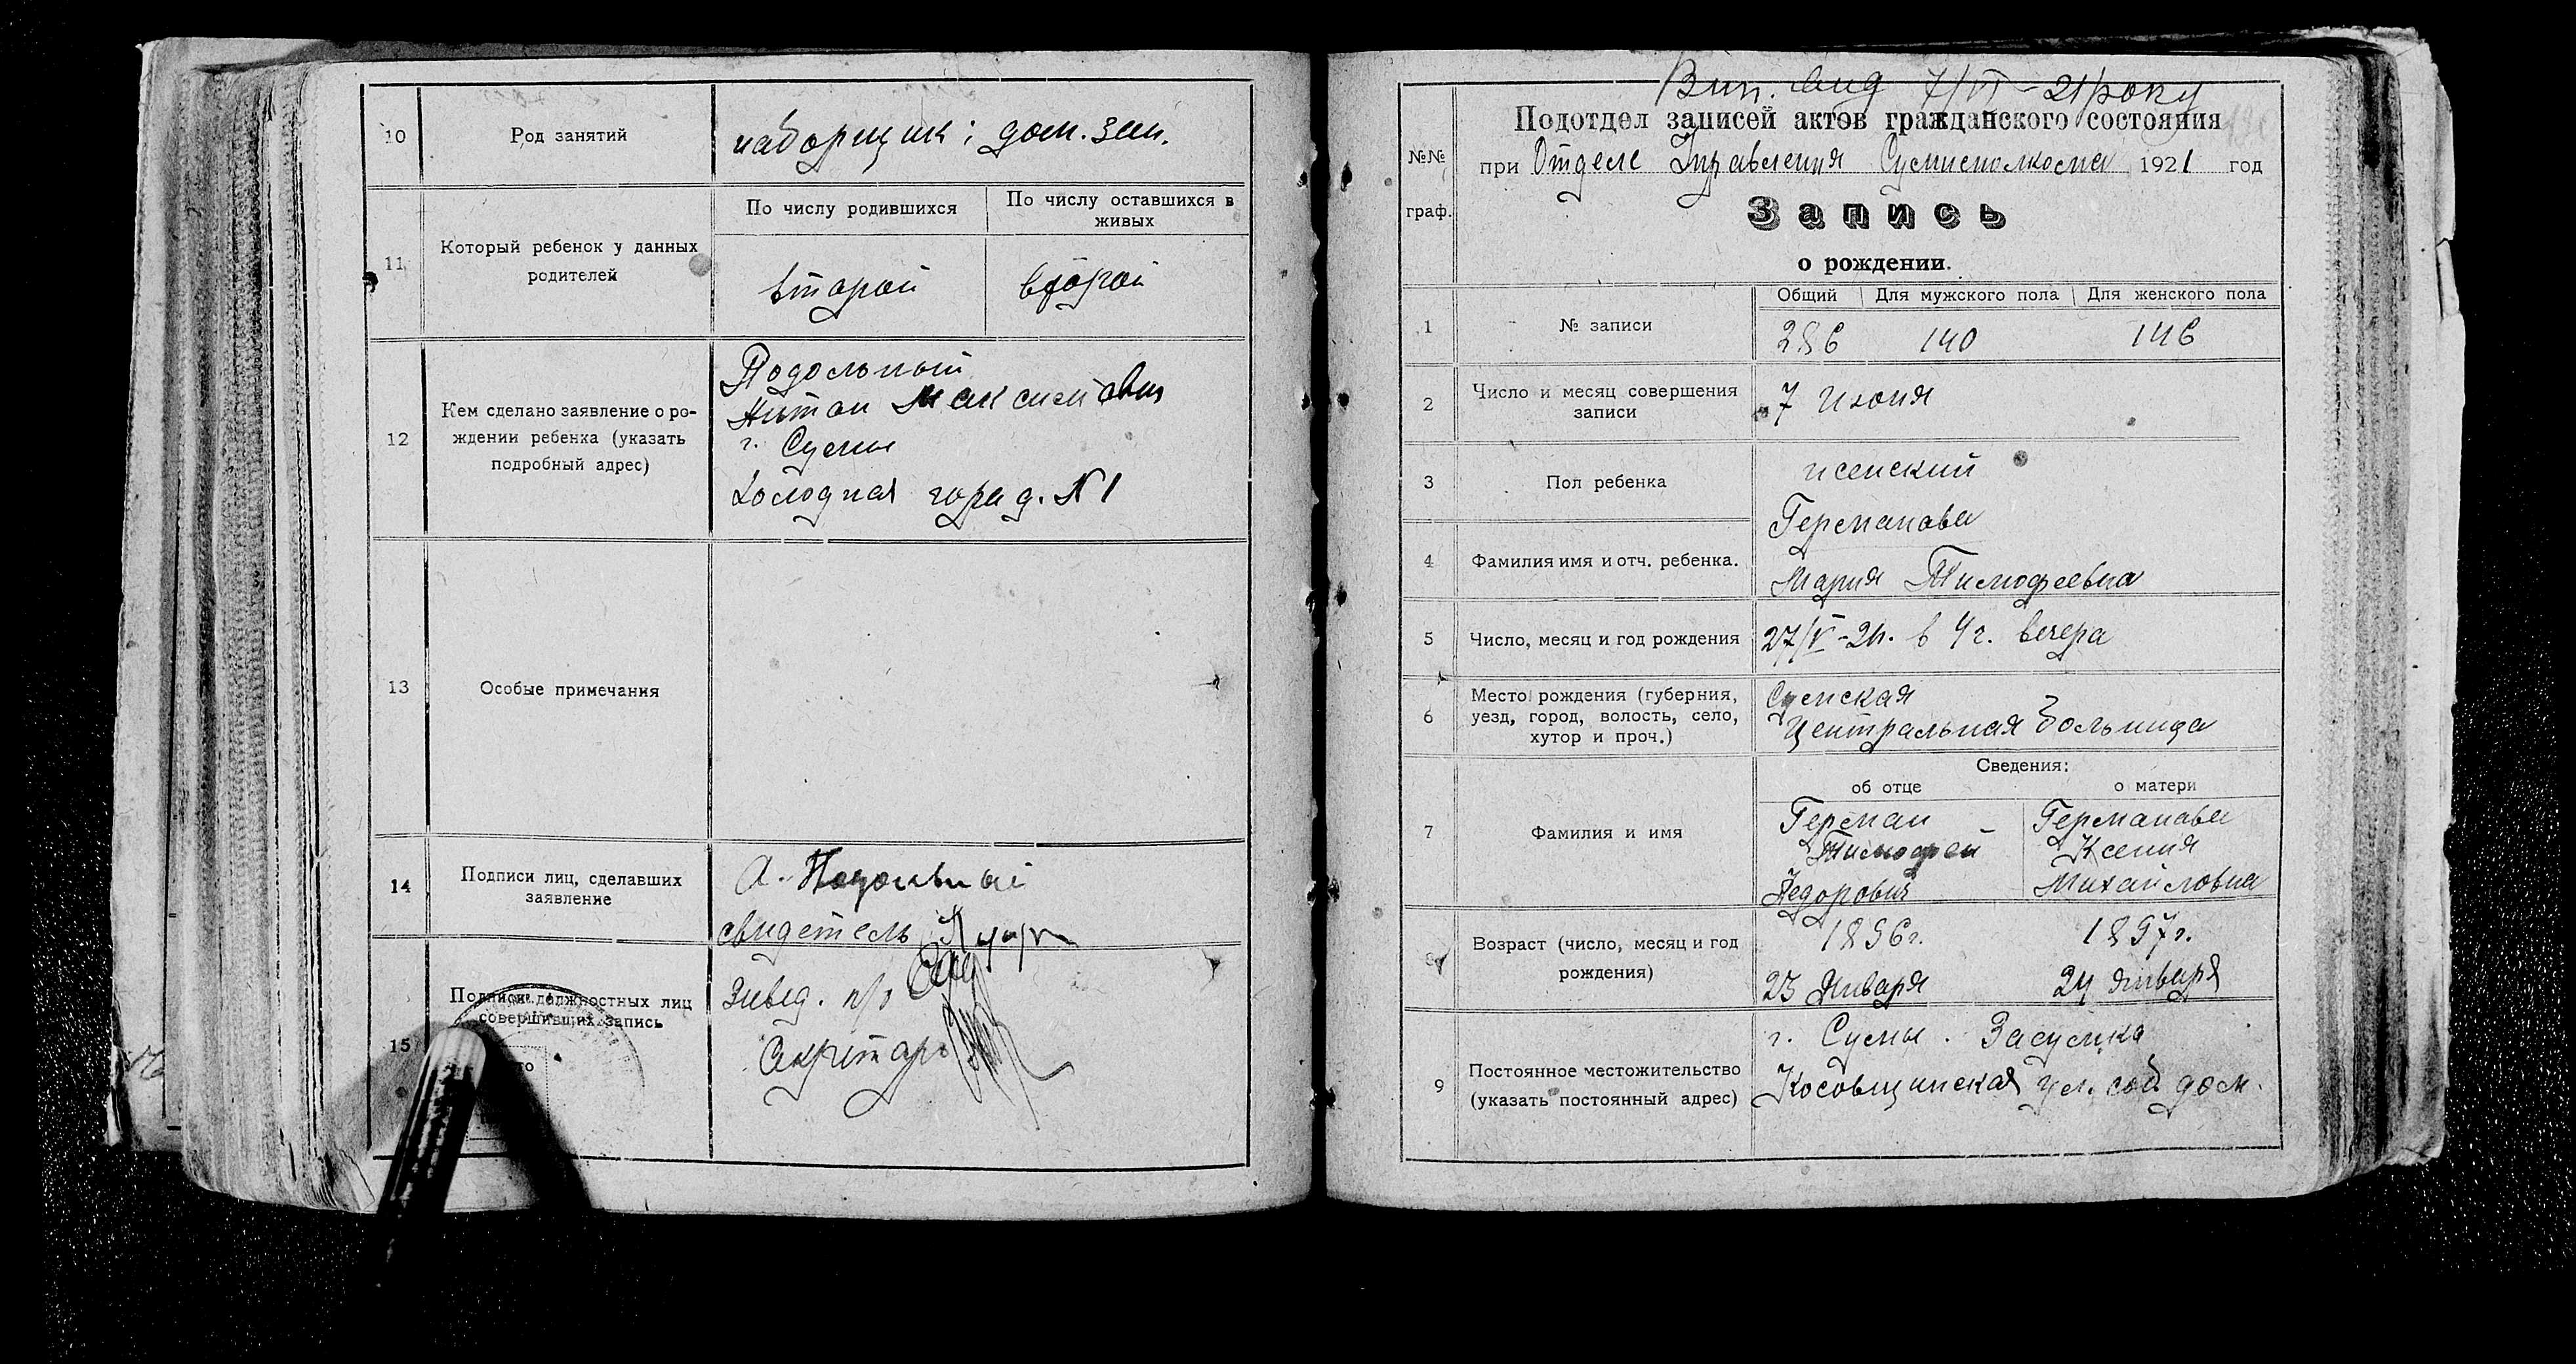 10
Род занятий
наборщик; дом. зан.
11
Который ребенок у данных
родителей
По числу родившихся
По число оставшихся в
живых
второй
второй
12
Кем сделано заявление о ро-
ждении ребенка (указать
подробный адрес)
Подольный
Антон Максимович
г. Сумы
Холодная гора д. №1
13
Особые примечания
14
Подписи лиц, сделавших
заявление
А. Подольный
свидетель
15
Подписи должностных лиц
совершивших запись
Завед. п/о
Секретарь
Вип. вид 7/VI - 21 року
№№
граф.
Подотдел записей актов гражданского состояния
при Отделе Управления Сумисполкома 1921 год
Запись
о рождении.
1
№ записи
Общий
Для мужского пола
Для женского пола
286
140
146
2
Число и месяц совершения
записи
7 июня
3
Пол ребенка
женский
4
Фамилия имя и отч. ребенка.
Германова
Мария Тимофеевна
5
Число, месяц и год рождения
27/V-21г. в 4 г. вечера
6
Место рождения (губерния,
уезд, город, волость, село,
хутор и проч.)
Сумская
Центральная больница
Сведения:
об отце
о матери
7
Фамилия и имя
Герман
Тимофей
Федорович
Германова
Ксения
Михайловна
8
Возраст (число, месяц и год
рождения)
1896г.
23 Января
1897г.
24 января
9
Постоянное местожительство
(указать постоянный адрес)
г. Сумы. Засумка
Косовщинская ул. соб. дом.